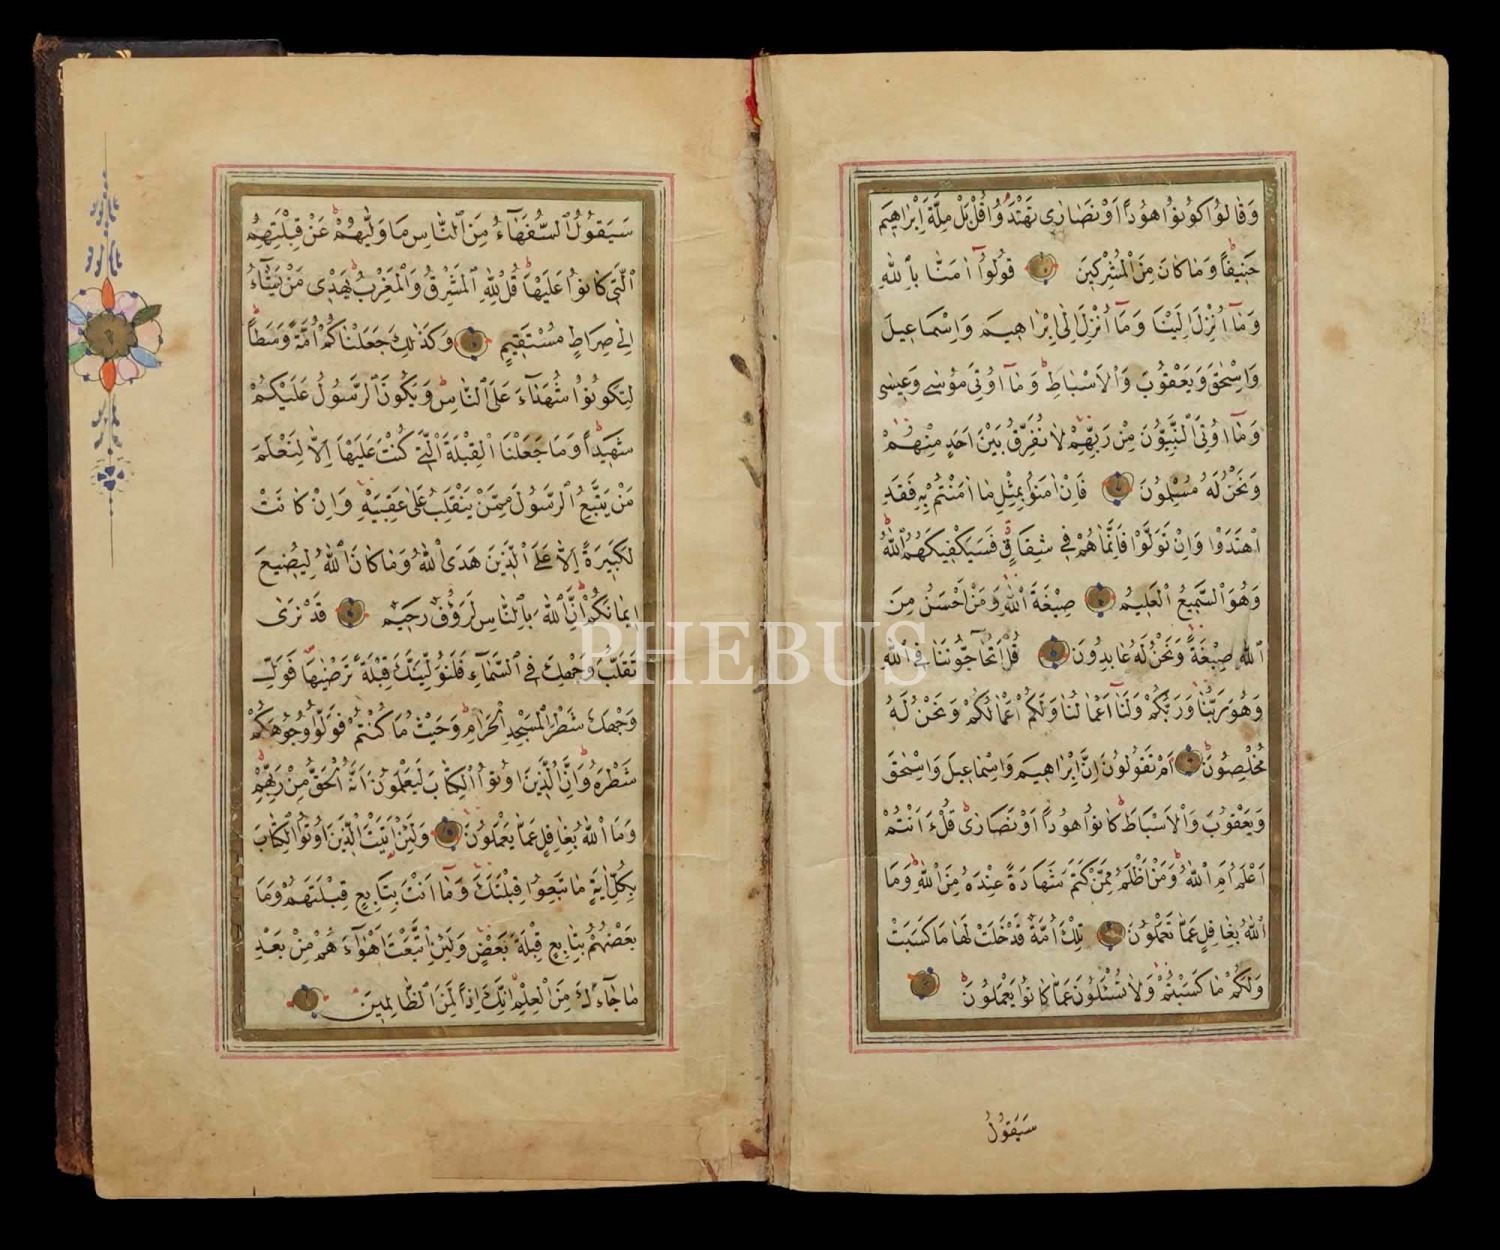 وَقَالُوا كُونُوا هُودًا اَوْ نَصَارٰى تَهْتَدُوا قُلْ بَلْ مِلَّةَ اِبْرٰاهِيمَ
حَنِيفًا وَمَا كَانَ مِنَ الْمُشْرِكِينَ قُولُوا اٰمَنَّا بِاللّٰهِ
وَمَا اُنْزِلَ اِلَيْنَا وَمَا اُنْزِلَ اِلٰى اِبْرٰاهِيمَ وَاِسْمَاعِيلَ
وَاِسْحٰقَ وَيَعْقُوبَ وَالْاَسْبَاطِ وَمَا اُوتِىَ مُوسٰى وَعِيسٰى
وَمَا اُوتِىَ النَّبِيُّونَ مِنْ رَبِّهِمْ لَا نُفَرِّقُ بَيْنَ اَحَدٍ مِنْهُمْ
وَنَحْنُ لَهُ مُسْلِمُونَ فَاِنْ اٰمَنُوا بِمِثْلِ مَا اٰمَنْتُمْ بِهِ فَقَدِ
اهْتَدَوْا وَاِنْ تَوَلَّوْا فَاِنَّمَا هُمْ فِى شِقَاقٍ فَسَيَكْفِيكَهُمُ اللّٰهُ
وَهُوَ السَّمِيعُ الْعَلِيمُ صِبْغَةَ اللّٰهِ وَمَنْ اَحْسَنُ مِنَ
اللّٰهِ صِبْغَةً وَنَحْنُ لَهُ عَابِدُونَ قُلْ اَتُحَاجُّونَنَا فِى اللّٰهِ
وَهُوَ رَبُّنَا وَرَبُّكُمْ وَلَنَا اَعْمَالُنَا وَلَكُمْ اَعْمَالُكُمْ وَنَحْنُ لَهُ
مُخْلِصُونَ اَمْ تَقُولُونَ اِنَّ اِبْرٰاهِيمَ وَاِسْمَاعِيلَ وَاِسْحٰقَ
وَيَعْقُوبَ وَالْاَسْبَاطَ كَانُوا هُودًا اَوْ نَصَارٰى قُلْ ءَاَنْتُمْ
اَعْلَمُ اَمِ اللّٰهُ وَمَنْ اَظْلَمُ مِمَّنْ كَتَمَ شَهَادَةً عِنْدَهُ مِنَ اللّٰهِ وَمَا
اللّٰهُ بِغَافِلٍ عَمَّا تَعْمَلُونَ تِلْكَ اُمَّةٌ قَدْ خَلَتْ لَهَا مَا كَسَبَتْ
وَلَكُمْ مَا كَسَبْتُمْ وَلَا تُسْئَلُونَ عَمَّا كَانُوا يَعْمَلُونَ
سَيَقُولُ
سَيَقُولُ السُّفَهَاءُ مِنَ النَّاسِ مَا وَلّٰيهُمْ عَنْ قِبْلَتِهِمُ
الَّتِى كَانُوا عَلَيْهَا قُلْ لِلّٰهِ الْمَشْرِقُ وَالْمَغْرِبُ يَهْدِى مَنْ يَشَاءُ
اِلٰى صِرَاطٍ مُسْتَقِيمٍ وَكَذٰلِكَ جَعَلْنَاكُمْ اُمَّةً وَسَطًا
لِتَكُونُوا شُهَدَاءَ عَلَى النَّاسِ وَيَكُونَ الرَّسُولُ عَلَيْكُمْ
شَهِيدًا وَمَا جَعَلْنَا الْقِبْلَةَ الَّتِى كُنْتَ عَلَيْهَا اِلَّا لِنَعْلَمَ
مَنْ يَتَّبِعُ الرَّسُولَ مِمَّنْ يَنْقَلِبُ عَلٰى عَقِبَيْهِ وَاِنْ كَانَتْ
لَكَبِيرَةً اِلَّا عَلَى الَّذِينَ هَدَى اللّٰهُ وَمَا كَانَ اللّٰهُ لِيُضِيعَ
اِيمَانَكُمْ اِنَّ اللّٰهَ بِالنَّاسِ لَرَؤُفٌ رَحِيمٌ قَدْ نَرٰى
تَقَلُّبَ وَجْهِكَ فِى السَّمَاءِ فَلَنُوَلِّيَنَّكَ قِبْلَةً تَرْضٰيهَا فَوَلِّ
وَجْهَكَ شَطْرَ الْمَسْجِدِ الْحَرَامِ وَحَيْثُ مَا كُنْتُمْ فَوَلُّوا وُجُوهَكُمْ
شَطْرَهُ وَاِنَّ الَّذِينَ اُوتُوا الْكِتَابَ لَيَعْلَمُونَ اَنَّهُ الْحَقُّ مِنْ رَبِّهِمْ
وَمَا اللّٰهُ بِغَافِلٍ عَمَّا يَعْمَلُونَ وَلَئِنْ اَتَيْتَ الَّذِينَ اُوتُوا الْكِتَابَ
بِكُلِّ اٰيَةٍ مَا تَبِعُوا قِبْلَتَكَ وَمَا اَنْتَ بِتَابِعٍ قِبْلَتَهُمْ وَمَا
بَعْضُهُمْ بِتَابِعٍ قِبْلَةَ بَعْضٍ وَلَئِنِ اتَّبَعْتَ اَهْوَاءَهُمْ مِنْ بَعْدِ
مَا جَاءَكَ مِنَ الْعِلْمِ اِنَّكَ اِذًا لَمِنَ الظَّالِمِينَ
PHEBUS